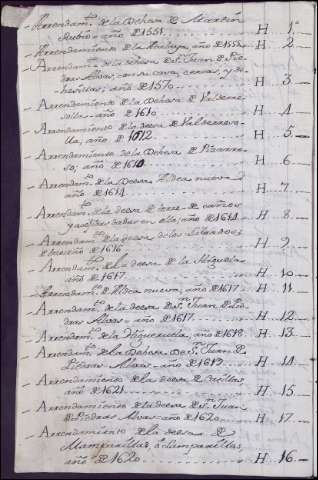 Arrendam.to de la Dehesa de Martin
Rubio - año de 1551. H 1º
Arrendamiento de la Atalaya, año de 1552 H 2
Arrendam.to de la Dehesa de S.n Juan de Pie
dras Alvas, con su cava, cercas, y
año de 1570 H 3
Arrendamiento de la Dehesa de
año de 1610 H 4
Arrendamiento de la Deesa de
año de 1612 H 5
Arrendamiento de la Dehesa de Pizarro
so; año de 1610 H 6
Arrendam.to de la Deesa Aldea nueva
año de 1614 H 7
Arrendam.to de la deesa de torre de
en ella, año de 1614 H 8
Arrendam.to de la deesa de los
de 1616 H 9
Arrendam.to de la deesa de la
año 1617 H 10
Arrendam.to de Aldea nueva, año de 1617 H 11
Arrendam.to de la deesa de S.n Juan de Pie
dras Alvas, año de 1617 H 12
Arrendam.to de la Higueruela, año de 1618 H 13
Arrendam.to de la Dehesa de S.n Juan de
Piedras Alvas - año de 1619 H 14
Arrendamiento de la deesa de Casillas
año de 1621 H 15
Arrendamiento de la deesa de S.n Juan
de Piedras Alvas año de 1620 H 17
Arrendamiento de la deesa de
Mamparillas, ó Camparillas,
año de 1620 H 16